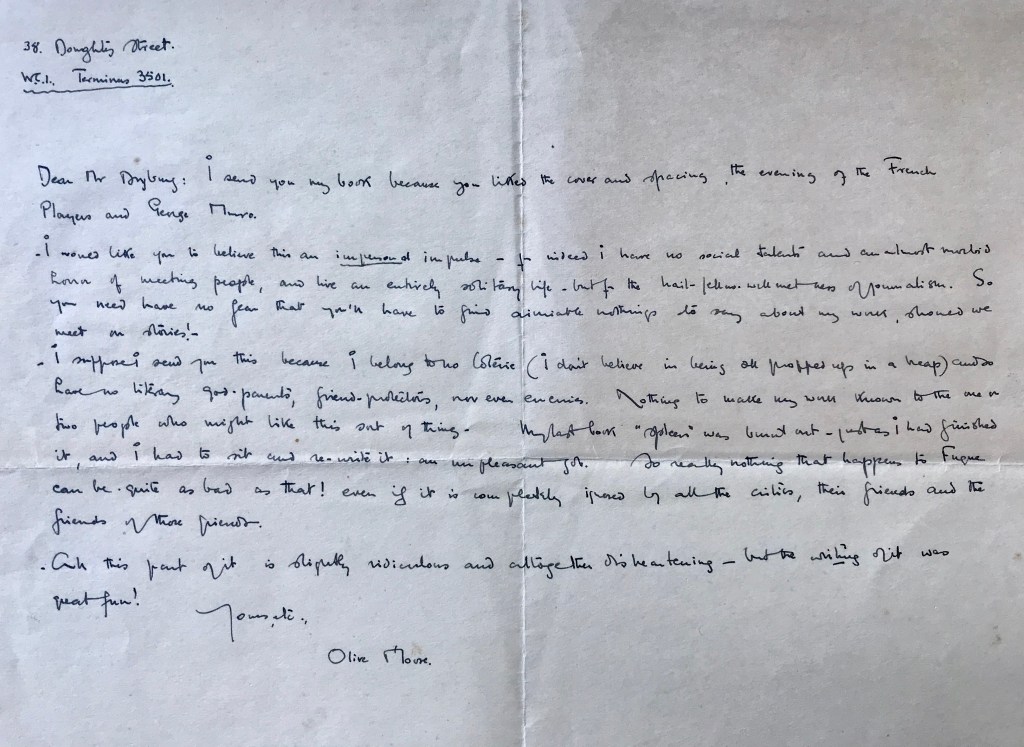 38. Doughty Street.
W.C.1. Terminus 3501.
Dear Mr Dryburg: I send you my book because you liked the cover and spacing, the evening of the French
Players and George Munro.
- I would like you to believe this an impersonal impulse - for indeed i have no social talents and an almost morbid
horror of meeting people, and live an entirely solitary life - but for the hail-fellow-well met ness of journalism. So
you need have no fear that you'll have to find aimiable nothings to say about my work, should we
meet on stories! -
- I suppose i send you this because i belong to no Côterie (i don't believe in being all propped up in a heap) and so
have no literary god-parents, friend-protectors, nor even enemies. Nothing to make my work known to the one or
two people who might like this sort of thing - My last book "Spleen" was burnt out - just as i had finished
it, and i had to sit and re-write it: an unpleasant job. So really nothing that happens to Fugue
can be quite as bad as that! even if it is completely ignored by all the critics, their friends and the
friends of those friends.
- Ah this part of it is slightly ridiculous and altogether disheartening - but the writing of it was
great fun!
Yours, etc.,
Olive Moore.